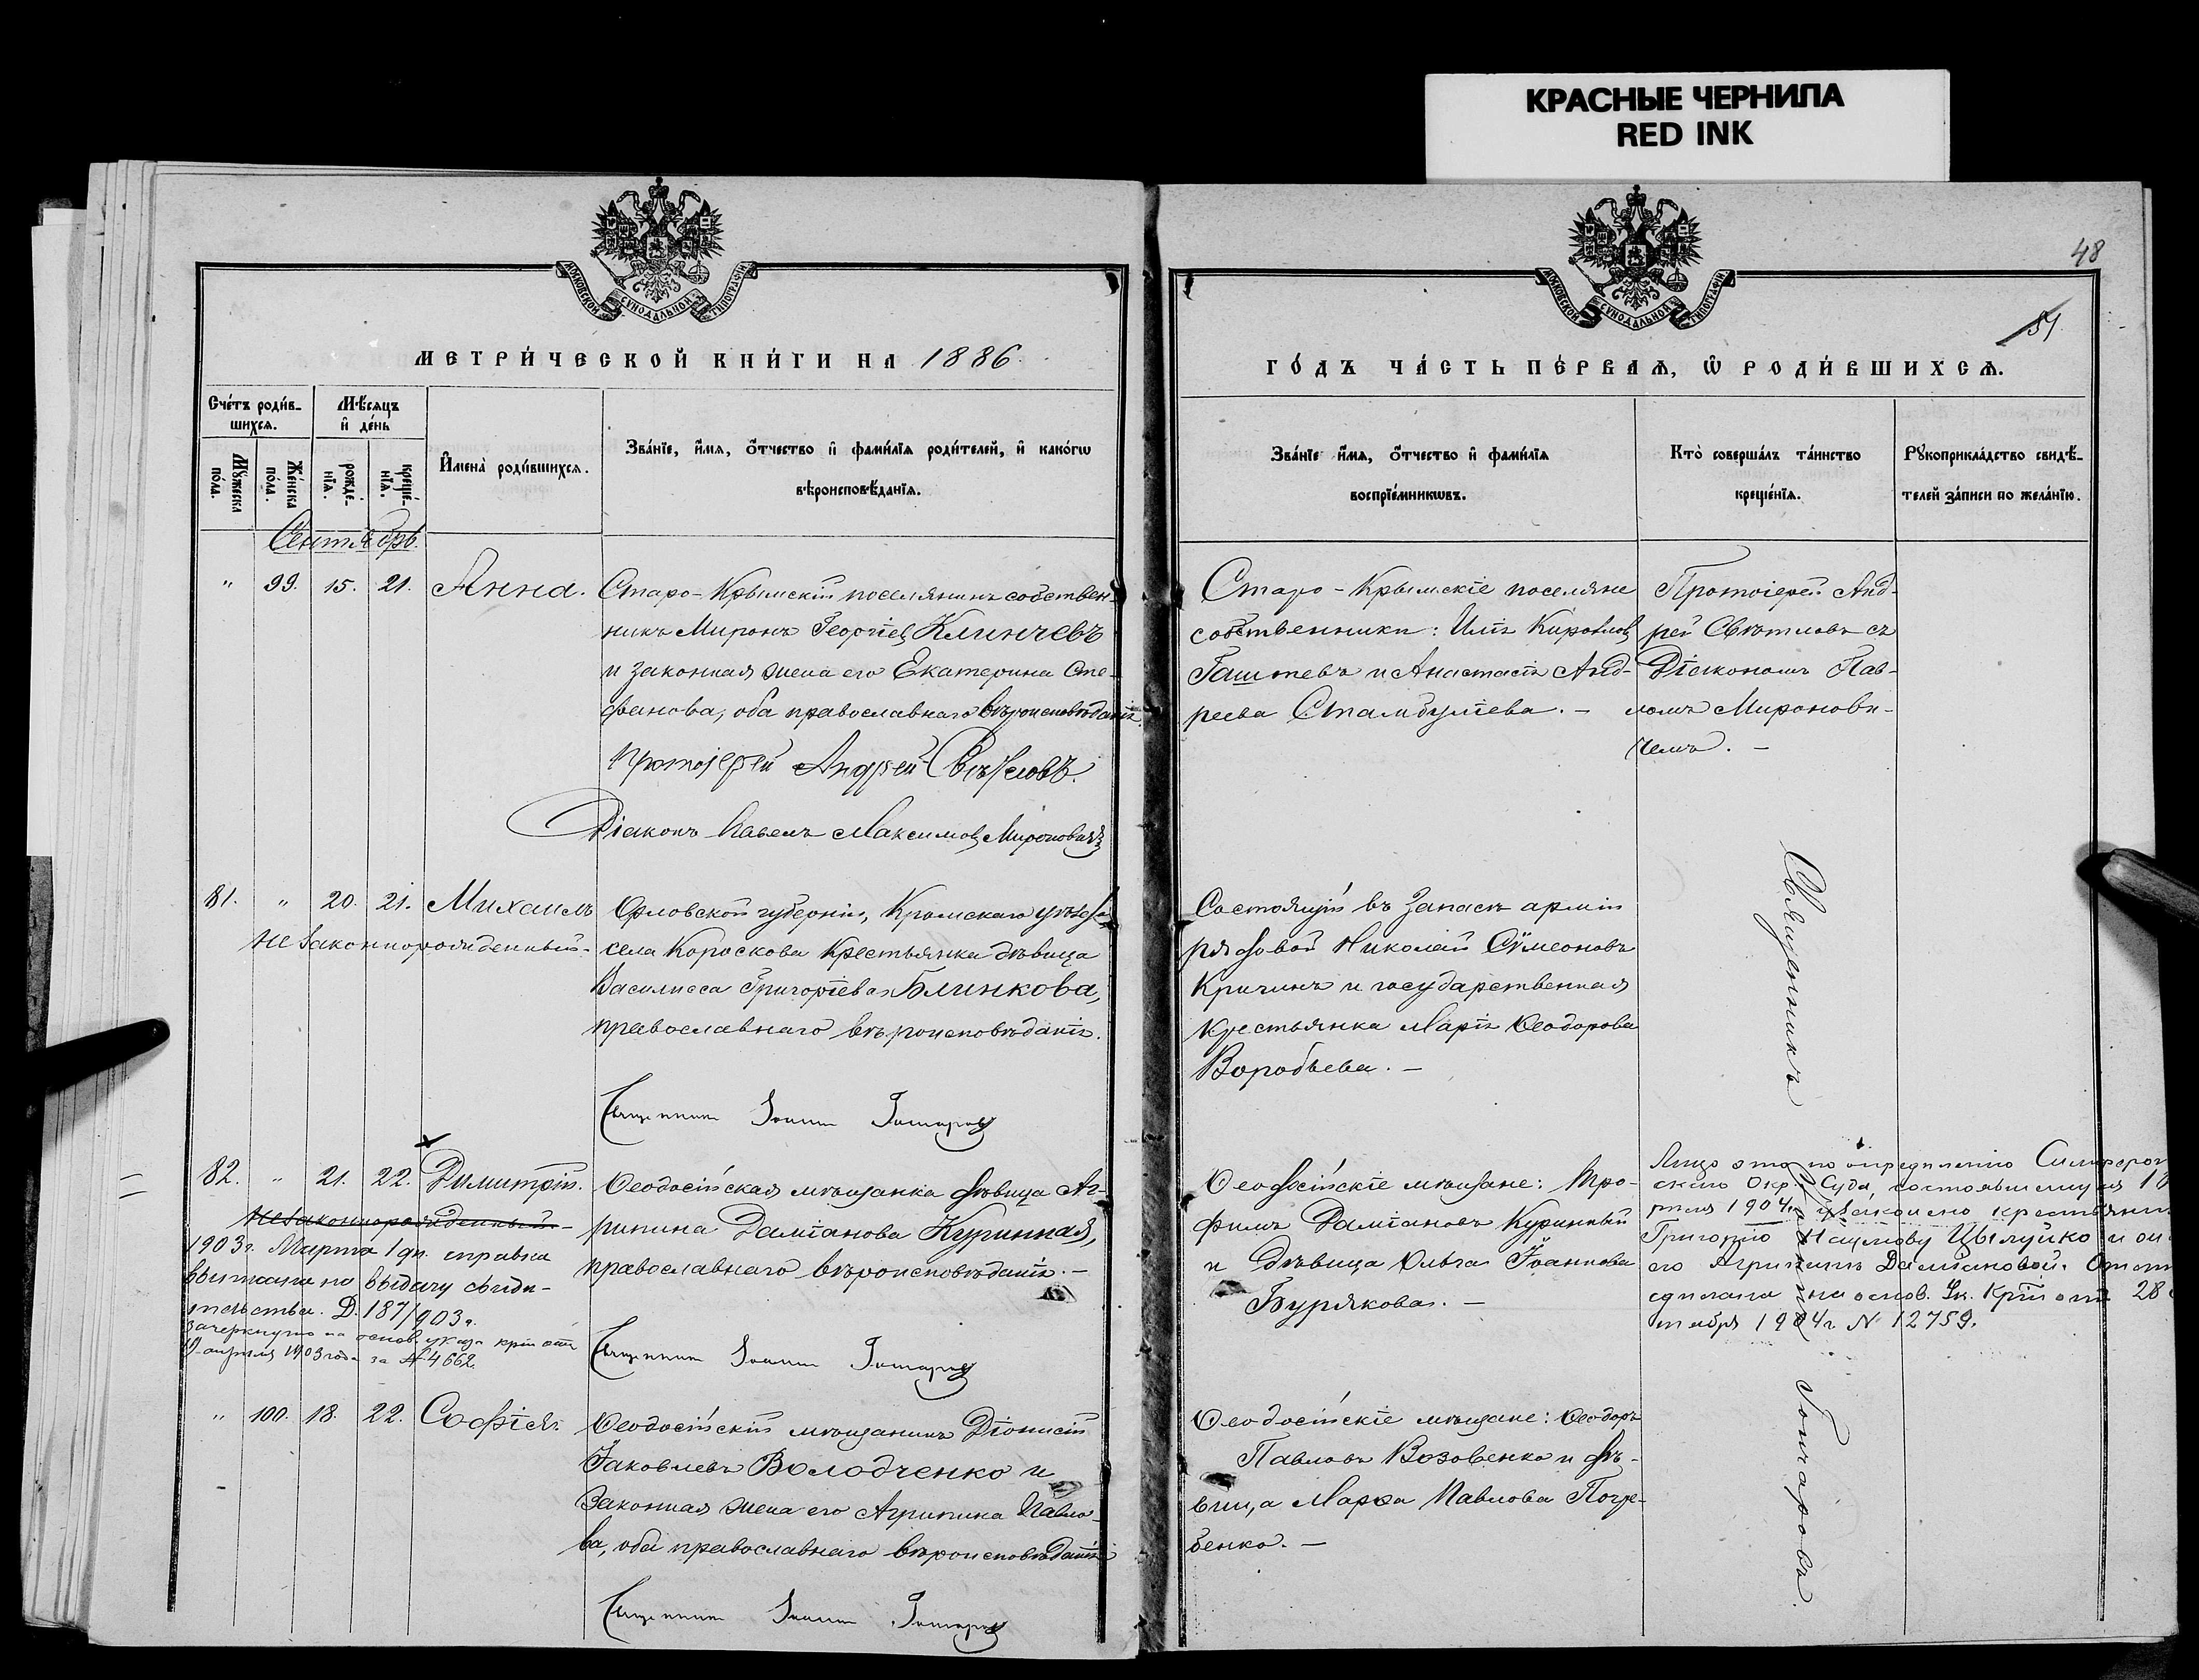 КРАСНЫЕ ЧЕРНИЛА
RED INK
48
51
МОСКОВСКОЙ СУНОДАЛЬНОЙ ТИПОГРАФІИ
МОСКОВСКОЙ СУНОДАЛЬНОЙ ТИПОГРАФІИ
МЕТРИ́ЧЕСКОЙ КНИ́ГИ НА 1886.
ГО́ДЪ ЧА́СТЬ ПЕ́РВАѦ, Ѿ РОДИ́ВШИХСѦ.
Сче́тъ роди́в-
шихсѧ.
Мꙋ́жеска
по́ла.
Же́нска
по́ла.
Мѣ́сѧцъ
и҆ де́нь
рожде́-
нїѧ.
креще́-
нїѧ.
И҆мена̀ роди́вшихсѧ.
Зва́нїе, и҆́мѧ, ѻ҆́тчество и҆ фами́лїѧ роди́телей, и҆ како́гѡ
вѣроисповѣ́данїѧ.
Зва́нїе и҆́мѧ, ѻ҆́тчество и҆ фами́лїѧ
воспрїе́мникѡвъ.
Кто̀ соверша́лъ та́инство
креще́нїѧ.
Рꙋкоприкла́дство свидѣ́-
телей за́писи по жела́нїю.
Сентябрь.
" 99. 15. 21. Анна.
Старо-Крымскій поселянинъ собствен-
никъ Миронъ Георгіев Клинчевъ
и законная жена его Екатерина Сте-
фанова, оба православнаго вѣроисповѣданія
Протоіерей Андрей Свѣтловъ.
Діаконъ Павелъ Максимов Мироновичъ
Старо-Крымскіе поселяне
собственники: Илія Кирилов
Гаштевъ и Анастасія Анд-
реева Стамбуліева. –
Протоіерей Анд-
рей Свѣтловъ съ
Діакономъ Пав-
ломъ Миронови-
чемъ. –
81. " 20. 21. Михаилъ
незаконнорожденный.
Орловской губерніи, Кромскаго уѣзда
села Короскова крестьянка дѣвица
Василисса Григоріева Блинкова,
православнаго вѣроисповѣданія.
Священник Іоанн Гончаров
Состоящій въ запасѣ арміи
рядовой Николай Сѵмеоновъ
Кричинъ и государственная
крестьянка Марія Ѳеодорова
Воробьева. –
Священникъ Іоаннъ Гончаровъ.
82. " 21. 22. Димитрій.
незаконнорожденный –
1903г. Марта 1 дн. справка
выписана на выдачу свиде-
тельства. Д. 187/903г.
зачеркнуто на основ. указа крт отъ
9 апреля 1903 года за № 4662.
Ѳеодосійская мѣщанка дѣвица Аг-
рипина Даміанова Куринная,
православнаго вѣроисповѣданія. –
Священник Іоанн Гончаров
Ѳеодосійскіе мѣщане: Тро-
фимъ Даміановъ Куринный
и дѣвица Ольга Іоаннова
Бурякова. –
Лицо это по определенію Симфероп
скаго Окр. Суда, состоявшемуся 1
реля 1904 г. узаконено крестьянин
Григорію Наумову Цылуйко и
его Агрипинѣ Даміановой.
сделана на основ. Ук. 28
тября 1904г № 12759.
" 100. 18. 22. Софія.
Ѳеодосійскій мѣщанинъ Діонисій
Іаковлевъ Володченко и
законная жена его Агрипина Павло-
ва, оба православнаго вѣроисповѣданія
Священник Іоанн Гончаров
Ѳеодосійскіе мѣщане: Ѳеодоръ
Павловъ Возовенко и дѣ-
вица Марѳа Павлова Погре-
бенко. –